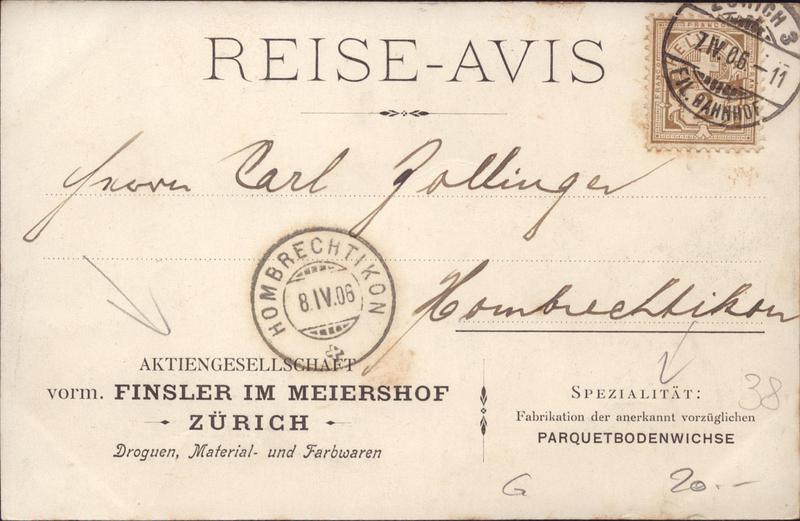 REISE-AVIS
ZÜRICH 3
7.IV.06.-11
FIL. BAHNHOF
Herrn Carl Zollinger
Hombrechtikon
HOMBRECHTIKON
8.IV.06
AKTIENGESELLSCHAFT
vorm. FINSLER IM MEIERSHOF
ZÜRICH
Droguen, Material- und Farbwaren
SPEZIALITÄT:
Fabrikation der anerkannt vorzüglichen
PARQUETBODENWICHSE
38
G
20.-